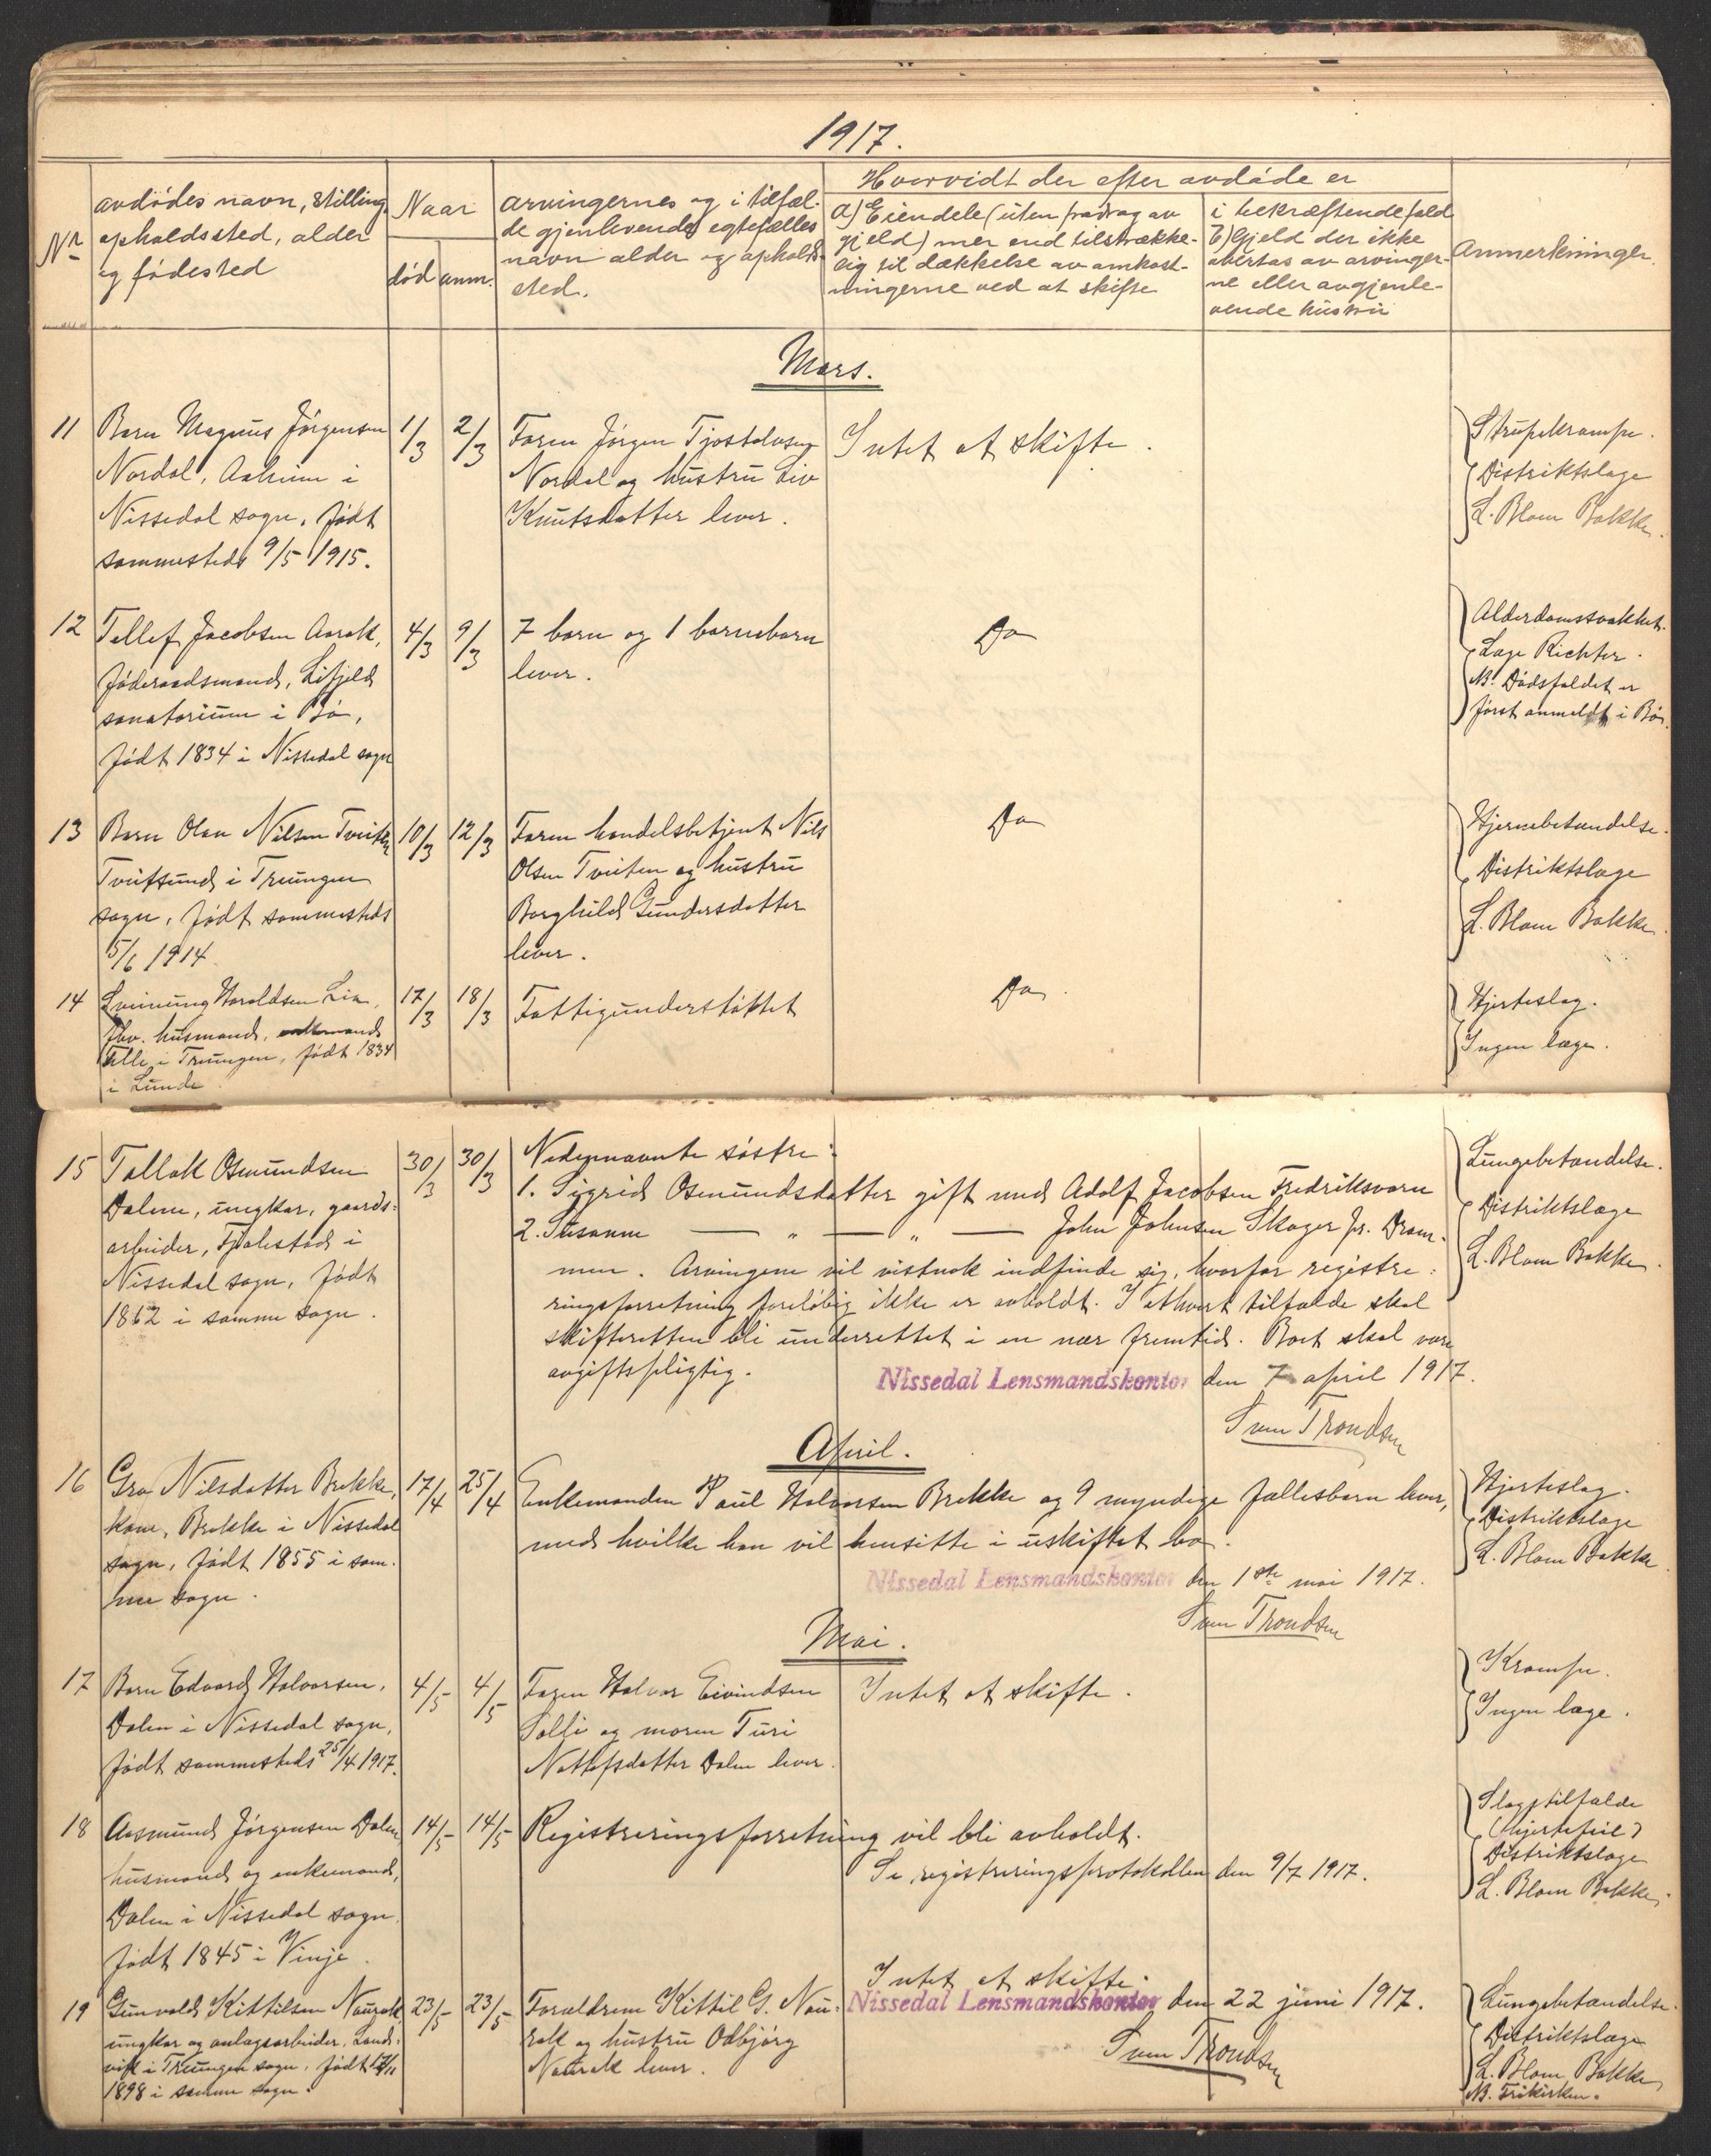 1917.
Nr.
avdødes navn, stilling,
opholdssted, alder
og fødested
Naar
død
anm.
arvingernes og i tilfæl-
de gjenlevende egtefælles
navn alder og opholds-
sted.
Hvorvidt der efter avdøde er
a) Eiendele (uten fradrag av
gjeld) mer end tilstrække-
lig til dækkelse av omkost-
ningerne ved at skifte
i bekræftende fald
b) Gjeld der ikke
overtas av arvinger-
ne eller avgjenle-
vende hustru
Anmerkninger.
Mars.
11
Barn Magnus Jørgensen
Nordal, Aaheim i
Nissedal sogn. Født
sammesteds 9/5 1915.
1/3
2/3
Faren Jørgen Tjostolvsen
Nordal og hustru Liv
Knutsdatter lever.
Intet at skifte.
Strupekrampe.
Distriktslæge
L. Blom Bakke.
12
Tellef Jacobsen Aarak,
føderaadsmand, Lifjeld
sanatorium i Bø,
født 1834 i Nissedal sogn
4/3
9/3
7 barn og 1 barnebarn
lever.
Do
Alderdomssvakhet.
Læge Richter.
NB. Dødsfaldet er
først anmeldt i Bø.
13
Barn Olav Nilsen Tveiten
Tveitsund i Treungen
sogn, født sammesteds
5/6 1914.
10/3
12/3
Faren handelsbetjent Nils
Olsen Tveiten og hustru
Borghild Gundersdatter
lever.
Do
Hjernebetændelse.
Distriktslæge
L. Blom Bakke.
14
Sveinung Haroldsen Lia,
fhv. husmand, enkemand
Felle i Treungen, født 1834
i Lunde
17/3
18/3
Fattigunderstøttet
Do.
Hjerteslag.
Ingen læge.
15
Tallak Osmundsen
Dalene, ungkar, gaards-
arbeider, Fjalestad i
Nissedal sogn, født
1862 i samme sogn.
30/3
30/3
Nedennævnte søstre:
1. Sigrid Osmundsdatter gift med Adolf Jacobsen Fredriksværn
2. Susanne — „ — „ — John Johnsen Skoger pr. Dram-
men. Arvingene vil vistnok indfinde sig, hvorfor registre-
ringsforretning foreløbig ikke er avholdt. I ethvert tilfælde skal
skifteretten bli underrettet i en nær fremtid. Boet skal være
avgiftspligtig.
Nissedal Lensmandskontor den 7 april 1917.
Sven Trondsen
Lungebetændelse.
Distriktslæge
L. Blom Bakke.
April.
16
Gro Nilsdatter Brekke,
kone, Brekke i Nissedal
sogn, født 1855 i sam-
me sogn.
17/4
25/4
Enkemanden Paul Halvorsen Brekke og 9 myndige fællesbarn lever,
med hvilke han vil hensitte i uskiftet bo.
Nissedal Lensmandskontor den 1ste mai 1917.
Sven Trondsen
Hjerteslag.
Distriktslæge
L. Blom Bakke
Mai.
17
Barn Edvard Halvorsen,
Dalen i Nissedal sogn,
født sammesteds 25/4 1917.
4/5
4/5
Faren Halvor Eivindsen
Solli og moren Turi
Nottofsdatter Dalen lever.
Intet at skifte.
Krampe.
Ingen læge.
18
Aasmund Jørgensen Dalen
husmand og enkemand,
Dalen i Nissedal sogn,
født 1845 i Vinje.
14/5
14/5
Registreringsforretning vil bli avholdt.
Se registreringsprotokollen den 9/7 1917.
Slagtilfælde
(hjertefeil)
Distriktslæge
L. Blom Bakke.
19
Gunvald Kittilsen Naurak
ungkar og anlægsarbeider, Land-
vik i Treungen sogn, født 17/11
1898 i samme sogn.
23/5
23/5
Forældrene Kittil G. Nau-
rak og hustru Odbjørg
Naurak lever.
Intet at skifte.
Nissedal Lensmandskontor den 22 juni 1917.
Sven Trondsen
Lungebetændelse.
Distriktslæge
L. Blom Bakke
NB. Frikirken.